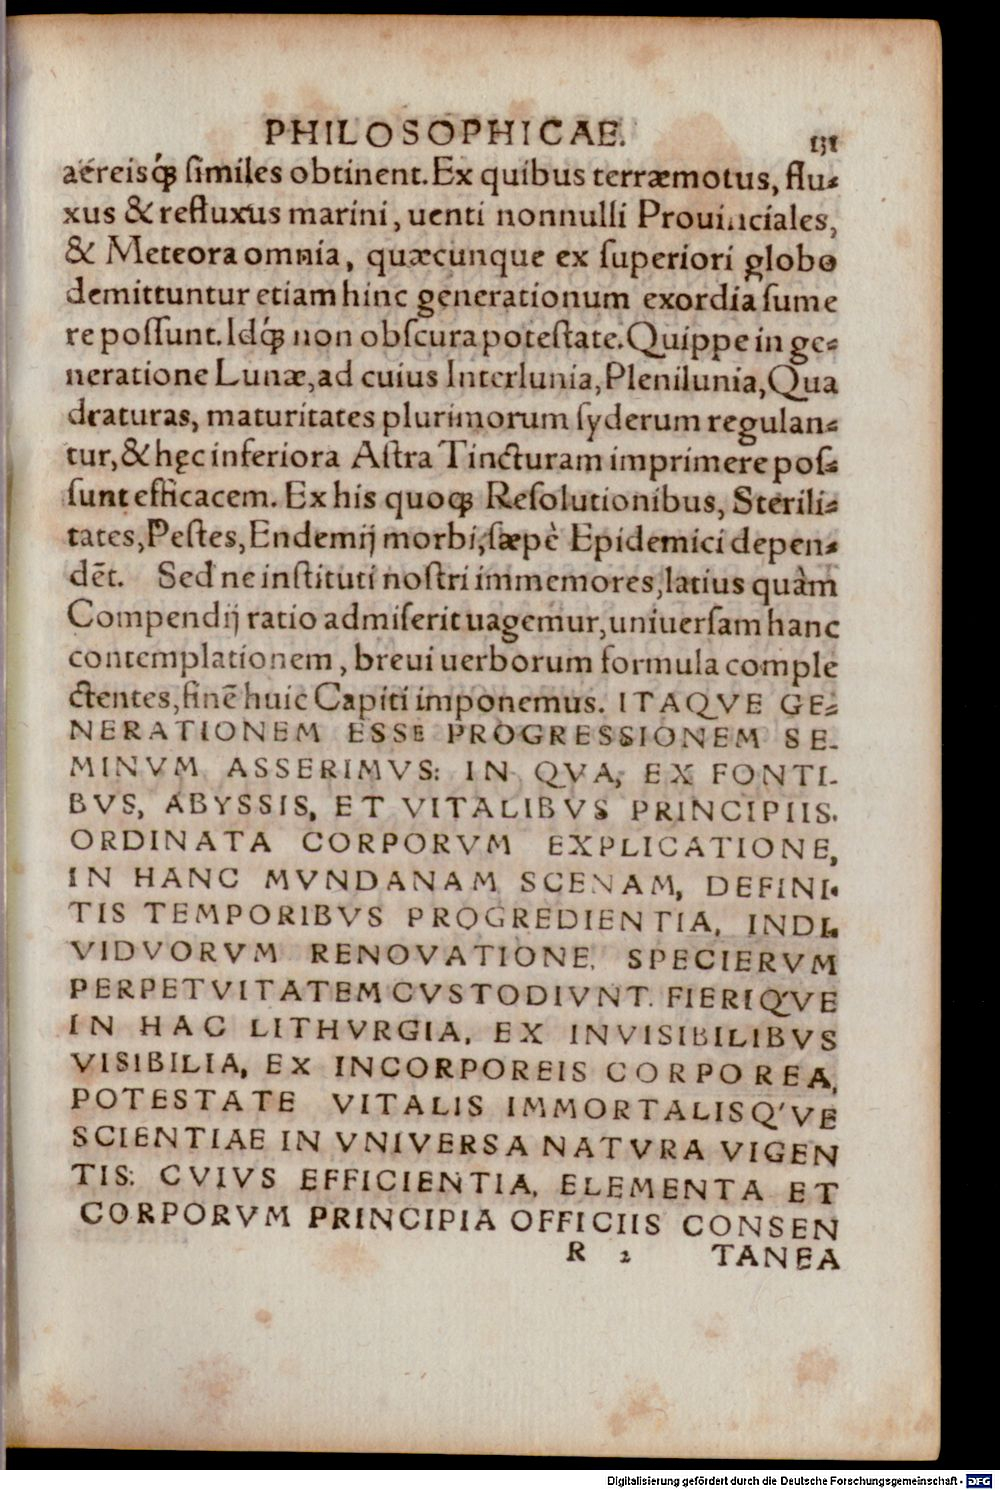 PHILOSOPHICAE. 131
aëreisq́; ſimiles obtinent. Ex quibus terræmotus, flu-
xus & refluxus marini, uenti nonnulli Prouinciales,
& Meteora omnia, quæcunque ex ſuperiori globo
demittuntur etiam hinc generationum exordia ſume
re poſſunt. Idq́; non obſcura poteſtate. Quippe in ge-
neratione Lunæ, ad cuius Interlunia, Plenilunia, Qua
draturas, maturitates plurimorum ſyderum regulan-
tur, & hęc inferiora Aſtra Tincturam imprimere poſ-
ſunt efficacem. Ex his quoq; Reſolutionibus, Sterili-
tates, Peſtes, Endemij morbi, ſæpè Epidemici depen-
dẽt. Sed ne inſtituti noſtri immemores, latius quàm
Compendij ratio admiſerit uagemur, uniuerſam hanc
contemplationem, breui uerborum formula comple
ctentes, finẽ huic Capiti imponemus. ITAQVE GE-
NERATIONEM ESSE PROGRESSIONEM SE-
MINVM ASSERIMVS: IN QVA, EX FONTI-
BVS, ABYSSIS, ET VITALIBVS PRINCIPIIS.
ORDINATA CORPORVM EXPLICATIONE,
IN HANC MVNDANAM SCENAM, DEFINI-
TIS TEMPORIBVS PROGREDIENTIA, INDI-
VIDVORVM RENOVATIONE, SPECIERVM
PERPETVITATEM CVSTODIVNT. FIERIQ'VE
IN HAC LITHVRGIA, EX INVISIBILIBVS
VISIBILIA, EX INCORPOREIS CORPOREA,
POTESTATE VITALIS IMMORTALISQ'VE
SCIENTIAE IN VNIVERSA NATVRA VIGEN
TIS: CVIVS EFFICIENTIA, ELEMENTA ET
CORPORVM PRINCIPIA OFFICIIS CONSEN
R 2 TANEA
Digitalisierung gefördert durch die Deutsche Forschungsgemeinschaft - DFG